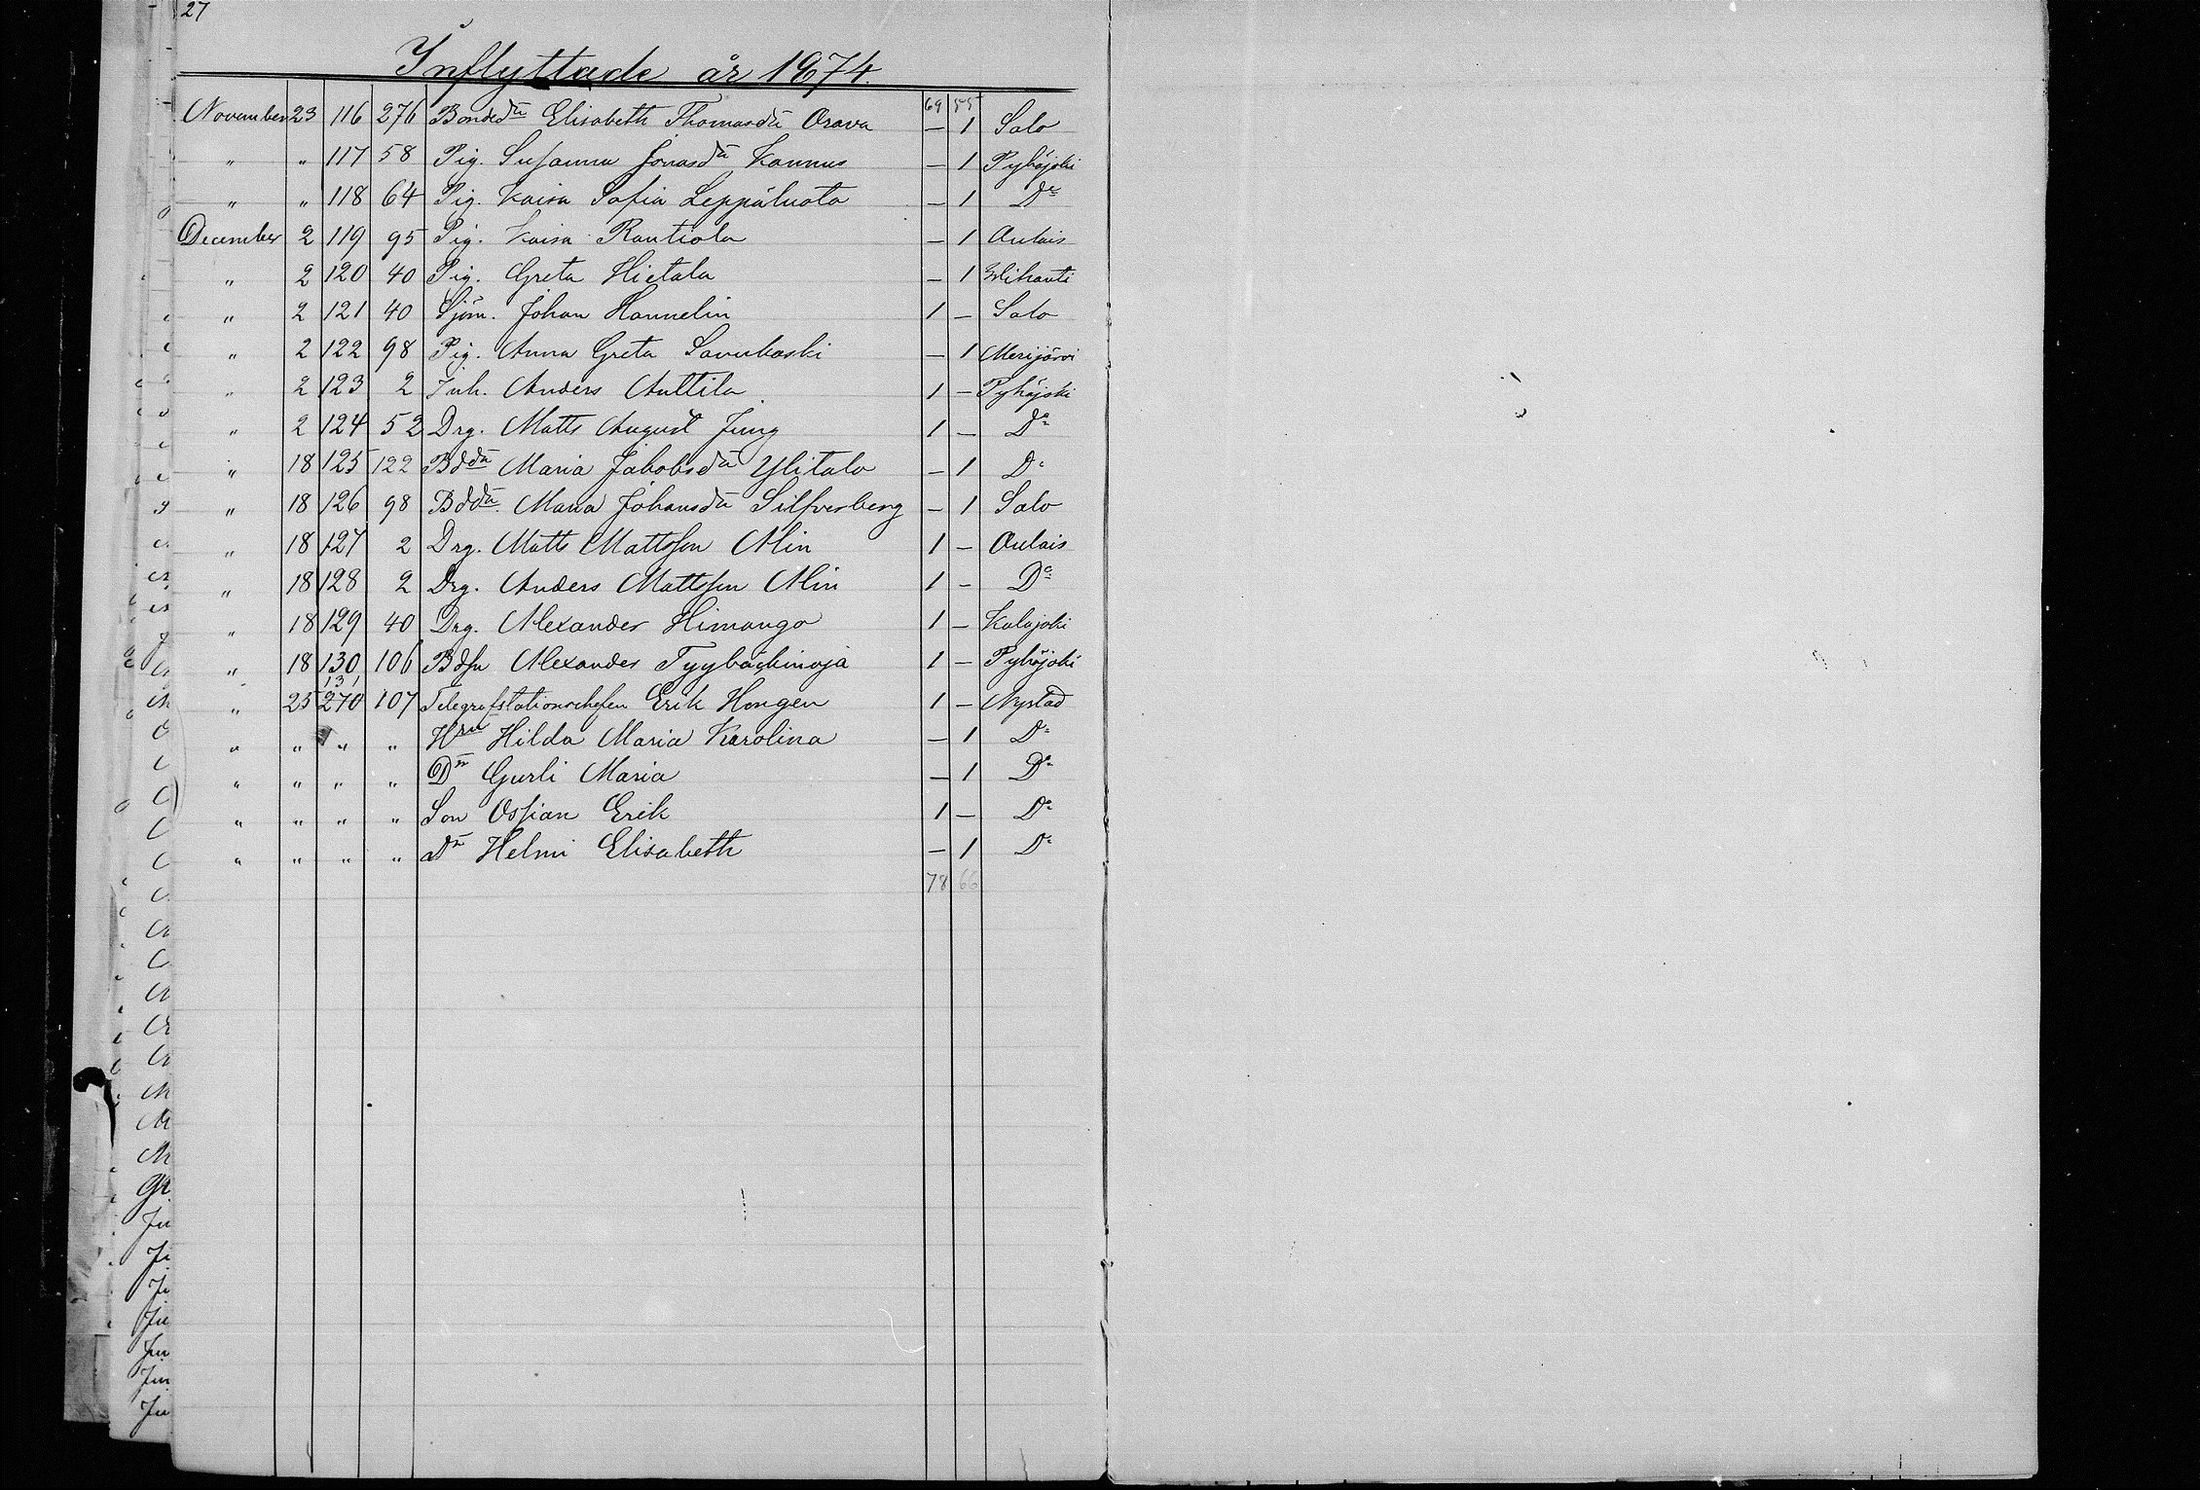 27
Inflyttade år 1874.
69 55
November 23 116 276 Bondedr Elisabeth Thomasdr Orava — 1 Salo
" " 117 58 Pig. Susanna Jonasdr Kannus — 1 Pyhäjoki
" " 118 64 Pig. Kaisa Sofia Leppäluoto — 1 Do
December 2 119 95 Pig. Kaisa Rautiola — 1 Oulais
" 2 120 40 Pig. Greta Hietala — 1 Wihanti
" 2 121 40 Sjöm. Johan Hannelin 1 — Salo
" 2 122 98 Pig. Anna Greta Savukoski — 1 Merijärvi
" 2 123 2 Inh. Anders Anttila 1 — Pyhäjoki
" 2 124 52 Drg. Matts August Jung 1 — Do
" 18 125 122 Bddr Maria Jakobsdr Ylitalo — 1 Do
" 18 126 98 Bddr. Maria Johansdr Silfverberg — 1 Salo
" 18 127 2 Drg. Matts Mattsson Alin 1 — Oulais
" 18 128 2 Drg. Anders Mattsson Alin 1 — Do
" 18 129 40 Drg. Alexander Himango 1 — Kalajoki
" 18 130 106 Bdsn Alexander 1 — Pyhäjoki
131
" 25 270 107 Telegrafstationschefen Erik Hongen 1 — Nystad
" " " " Hru Hilda Maria Karolina — 1 Do
" " " " Dr Gurli Maria — 1 Do
" " " " Son Ossian Erik 1 — Do
" " " " Dr Helmi Elisabeth — 1 Do
78 66